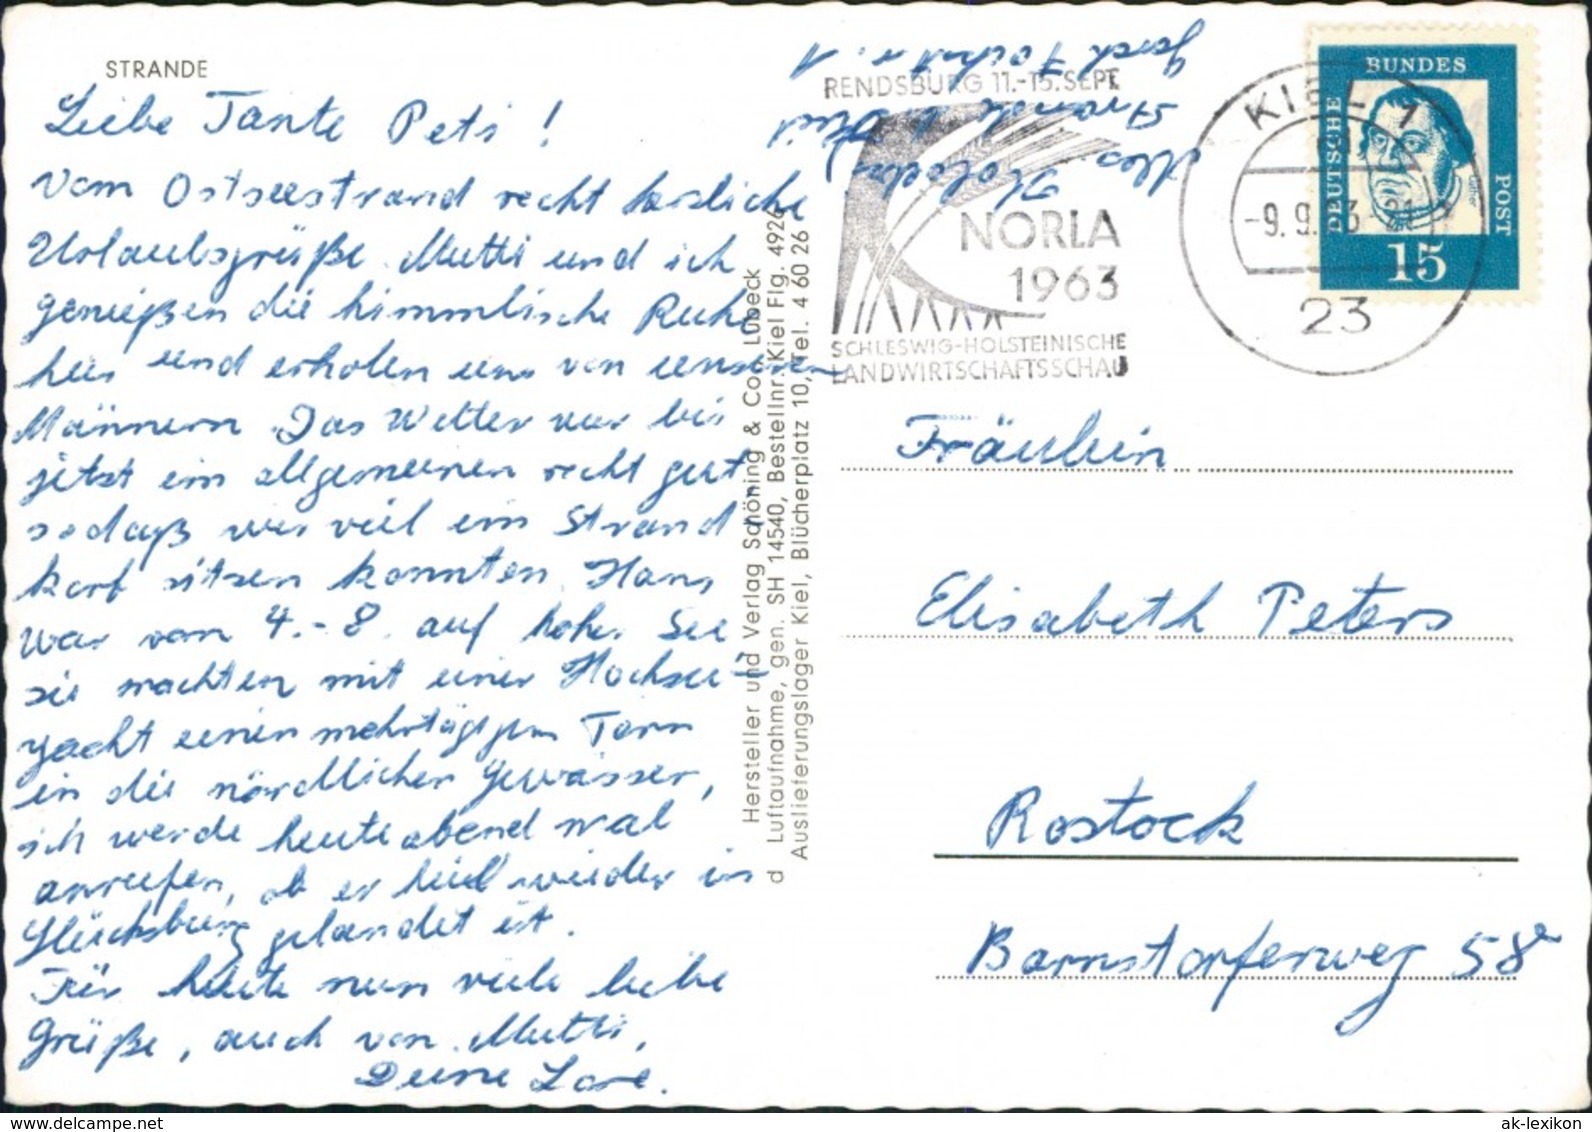 STRANDE
Liebe Tante Peti!
vom Ostseestrand recht herzliche
Urlaubsgrüße. Mutti und ich
genießen die himmlische Ruhe
hier und erholen uns von unseren
Männern. Das Wetter war bis
jetzt im allgemeinen recht gut
sodaß wir viel im Strand
korb sitzen konnten. Hans
war vom 4.-8. auf hoher See
sie machten mit einer Hochsee-
yacht einen mehrtägigen Törn
in die nördlichen Gewässer,
ich werde heute abend mal
anrufen, ob er heil wieder in
Glücksburg gelandet ist.
Für heute nun viele liebe
Grüße, auch von Mutti,
Deine Lore.
Hersteller und Verlag Schöning & Co. Lübeck
d Luftaufnahme, gen. SH 14540, Bestellnr. Kiel Flg. 4926
Auslieferungslager Kiel, Blücherplatz 10, Tel. 4 60 26
Strande b. Kiel
RENDSBURG 11.-15. SEPT.
NORLA
1963
SCHLESWIG-HOLSTEINISCHE
LANDWIRTSCHAFTSSCHAU
KIEL 1
-9.9.63-21
23
DEUTSCHE
BUNDES
POST
15
Fräulein
Elisabeth Peters
Rostock
Barnstorferweg 58a
delcampe.net
ak-lexikon